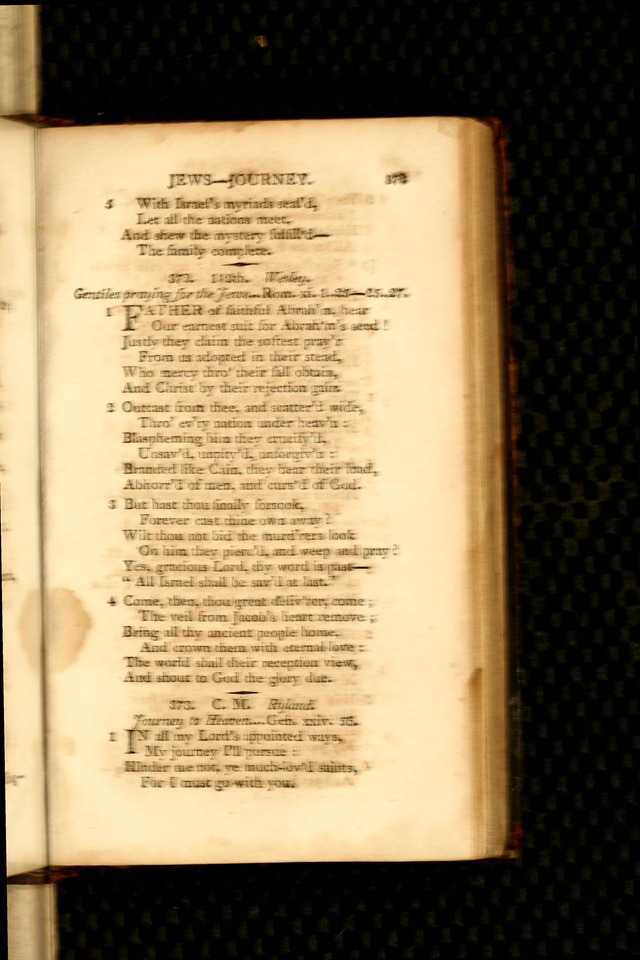 JEWS—JOURNEY.
5 With Israel's myriads seal'd,
Let all the nations meet,
And shew the mystery fulfill'd—
The family complete.
372. 112th. Wesley.
Gentiles praying for the Jews... Rom. xi.
1 FATHER of faithful Abrah'm, hear
Our earnest suit for Abrah'm's seed!
Justly they claim the softest pray'r
From us adopted in their stead,
Who mercy thro' their fall obtain,
And Christ by their rejection gain.
2 Outcast from thee, and scatter'd wide,
Thro' ev'ry nation under heav'n:
Blaspheming him they crucify'd,
Unsav'd, unpity'd, unforgiv'n:
Branded like Cain, they bear their load,
Abhorr'd of men, and curs'd of God.
3 But hast thou finally forsook,
Forever cast thine own away?
Wilt thou not bid the murd'rers look
On him they pierc'd, and weep and pray?
Yes, gracious Lord, thy word is past—
"All Israel shall be sav'd at last."
4 Come, then, thou great deliv'rer, come;
The veil from Jacob's heart remove;
Bring all thy ancient people home,
And crown them with eternal love:
The world shall their reception view,
And shout to God the glory due.
373. C. M. Ryland.
Journey to Heaven....Gen. xxiv. 56.
1 IN all my Lord's appointed ways,
My journey I'll pursue:
Hinder me not, ye much-lov'd saints,
For I must go with you.